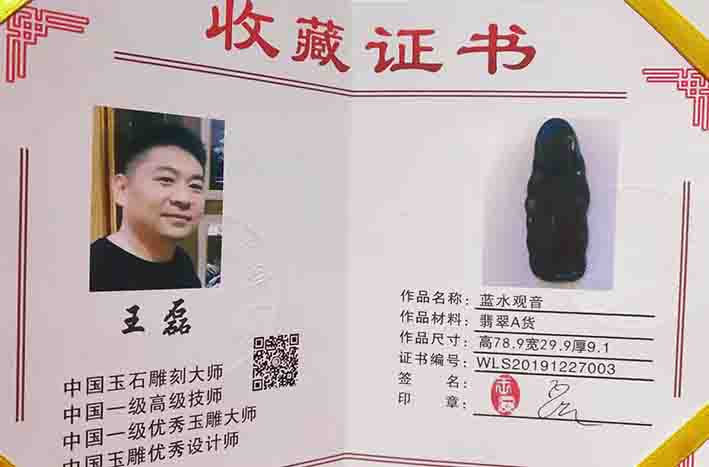 收藏证书
王磊
中国玉石雕刻大师
中国一级高级技师
中国一级优秀玉雕大师
中国玉雕优秀设计师
作品名称：蓝水观音
作品材料：翡翠A货
作品尺寸：高78.9宽29.9厚9.1
证书编号：WLS20191227003
签名：
印章：